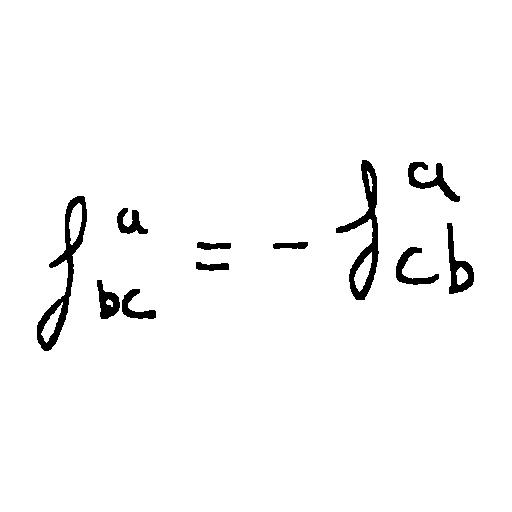 f^a_{bc} = - f^a_{cb}